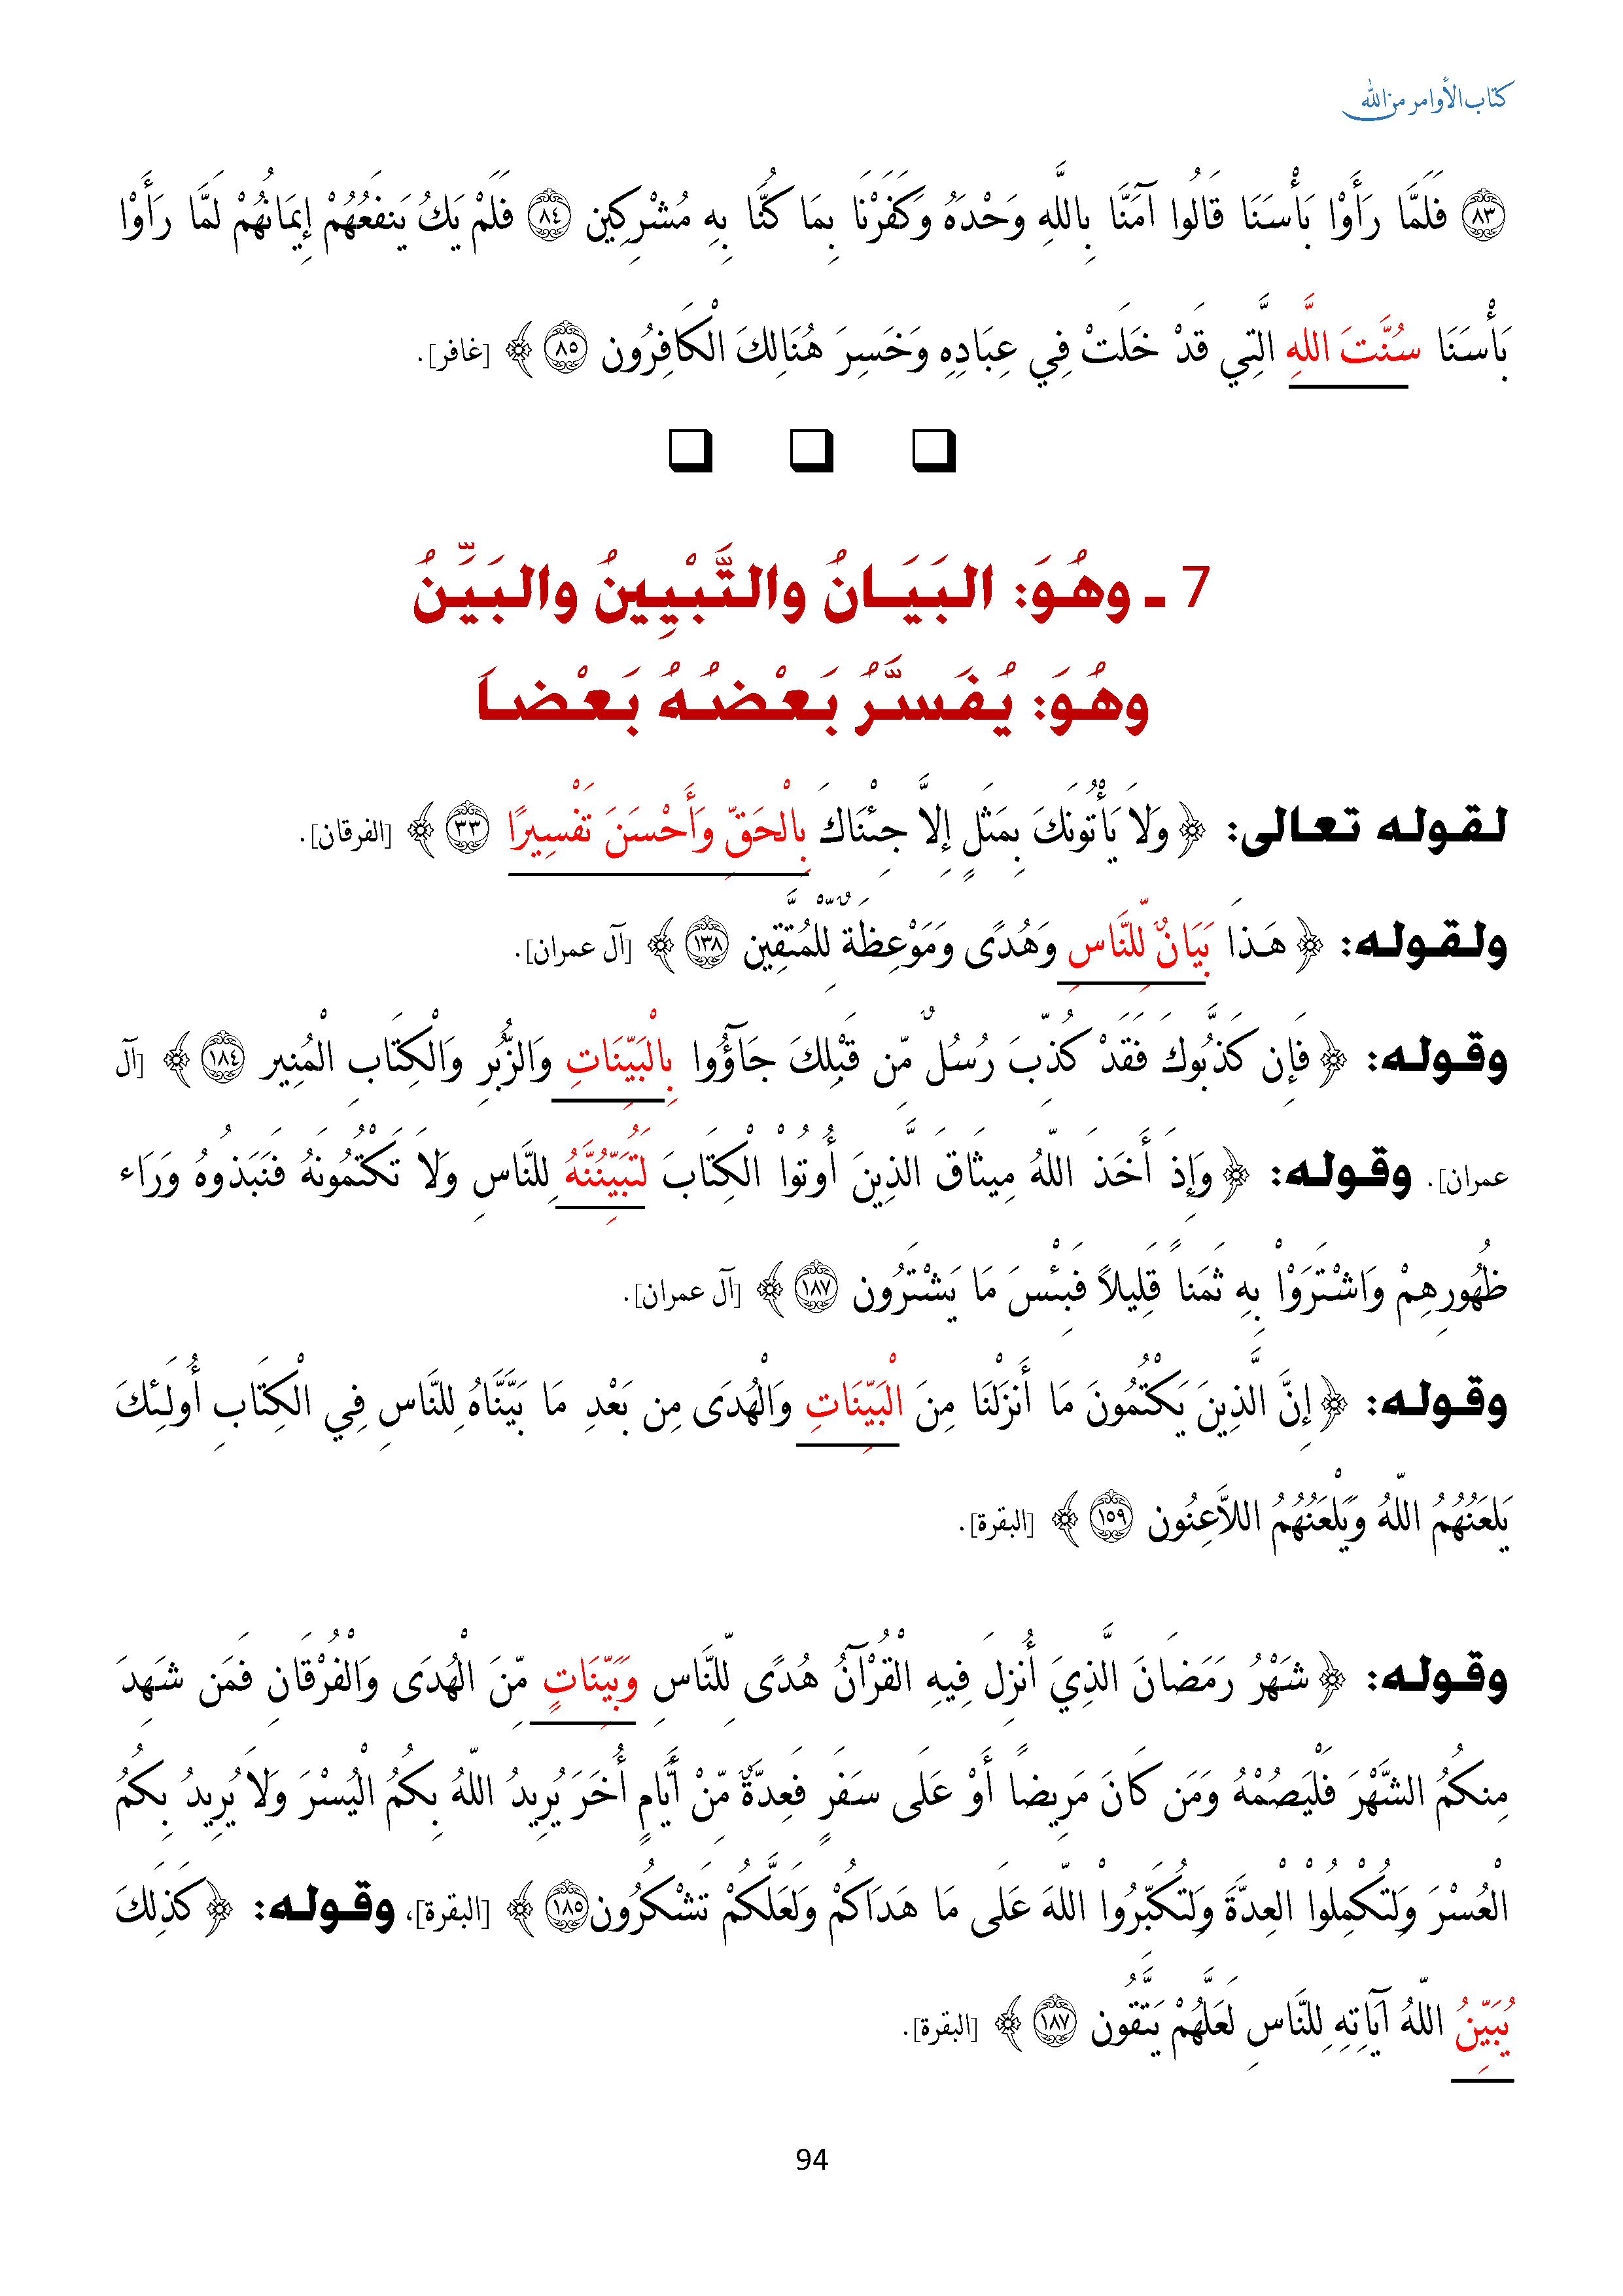 كتاب الأوامر من الله
﴿٨٣﴾ فَلَمَّا رَأَوْا بَأْسَنَا قَالُوا آمَنَّا بِاللَّهِ وَحْدَهُ وَكَفَرْنَا بِمَا كُنَّا بِهِ مُشْرِكِين ﴿٨٤﴾ فَلَمْ يَكُ يَنفَعُهُمْ إِيمَانُهُمْ لَمَّا رَأَوْا
بَأْسَنَا سُنَّتَ اللَّهِ الَّتِي قَدْ خَلَتْ فِي عِبَادِهِ وَخَسِرَ هُنَالِكَ الْكَافِرُون ﴿٨٥﴾ ﴾ [غافر].
❑ ❑ ❑
7 ـ وهُوَ: البَيَـانُ والتَّبْيِينُ والبَيِّنُ
وهُوَ: يُفَسَّرُ بَعْضُهُ بَعْضاَ
لقوله تعالى: ﴿ وَلَا يَأْتُونَكَ بِمَثَلٍ إِلَّا جِئْنَاكَ بِالْحَقِّ وَأَحْسَنَ تَفْسِيرًا ﴿٣٣﴾ ﴾ [الفرقان].
ولقوله: ﴿ هَـذَا بَيَانٌ لِّلنَّاسِ وَهُدًى وَمَوْعِظَةٌ لِّلْمُتَّقِين ﴿١٣٨﴾ ﴾ [آل عمران].
وقوله: ﴿ فَإِن كَذَّبُوكَ فَقَدْ كُذِّبَ رُسُلٌ مِّن قَبْلِكَ جَآؤُوا بِالْبَيِّنَاتِ وَالزُّبُرِ وَالْكِتَابِ الْمُنِير ﴿١٨٤﴾ ﴾ [آل
عمران]. وقوله: ﴿ وَإِذَ أَخَذَ اللّهُ مِيثَاقَ الَّذِينَ أُوتُوا الْكِتَابَ لَتُبَيِّنُنَّهُ لِلنَّاسِ وَلاَ تَكْتُمُونَهُ فَنَبَذُوهُ وَرَاء
ظُهُورِهِمْ وَاشْتَرَوْا بِهِ ثَمَناً قَلِيلاً فَبِئْسَ مَا يَشْتَرُون ﴿١٨٧﴾ ﴾ [آل عمران].
وقوله: ﴿ إِنَّ الَّذِينَ يَكْتُمُونَ مَا أَنزَلْنَا مِنَ الْبَيِّنَاتِ وَالْهُدَى مِن بَعْدِ مَا بَيَّنَّاهُ لِلنَّاسِ فِي الْكِتَابِ أُولَـئِكَ
يَلعَنُهُمُ اللّهُ وَيَلْعَنُهُمُ اللَّاعِنُون ﴿١٥٩﴾ ﴾ [البقرة].
وقوله: ﴿ شَهْرُ رَمَضَانَ الَّذِيَ أُنزِلَ فِيهِ الْقُرْآنُ هُدًى لِّلنَّاسِ وَبَيِّنَاتٍ مِّنَ الْهُدَى وَالْفُرْقَانِ فَمَن شَهِدَ
مِنكُمُ الشَّهْرَ فَلْيَصُمْهُ وَمَن كَانَ مَرِيضاً أَوْ عَلَى سَفَرٍ فَعِدَّةٌ مِّنْ أَيَّامٍ أُخَرَ يُرِيدُ اللّهُ بِكُمُ الْيُسْرَ وَلاَ يُرِيدُ بِكُمُ
الْعُسْرَ وَلِتُكْمِلُوْا الْعِدَّةَ وَلِتُكَبِّرُواْ اللّهَ عَلَى مَا هَدَاكُمْ وَلَعَلَّكُمْ تَشْكُرُون﴿١٨٥﴾ ﴾ [البقرة]، وقوله: ﴿ كَذَلِكَ
يُبَيِّنُ اللّهُ آيَاتِهِ لِلنَّاسِ لَعَلَّهُمْ يَتَّقُون ﴿١٨٧﴾ ﴾ [البقرة].
94